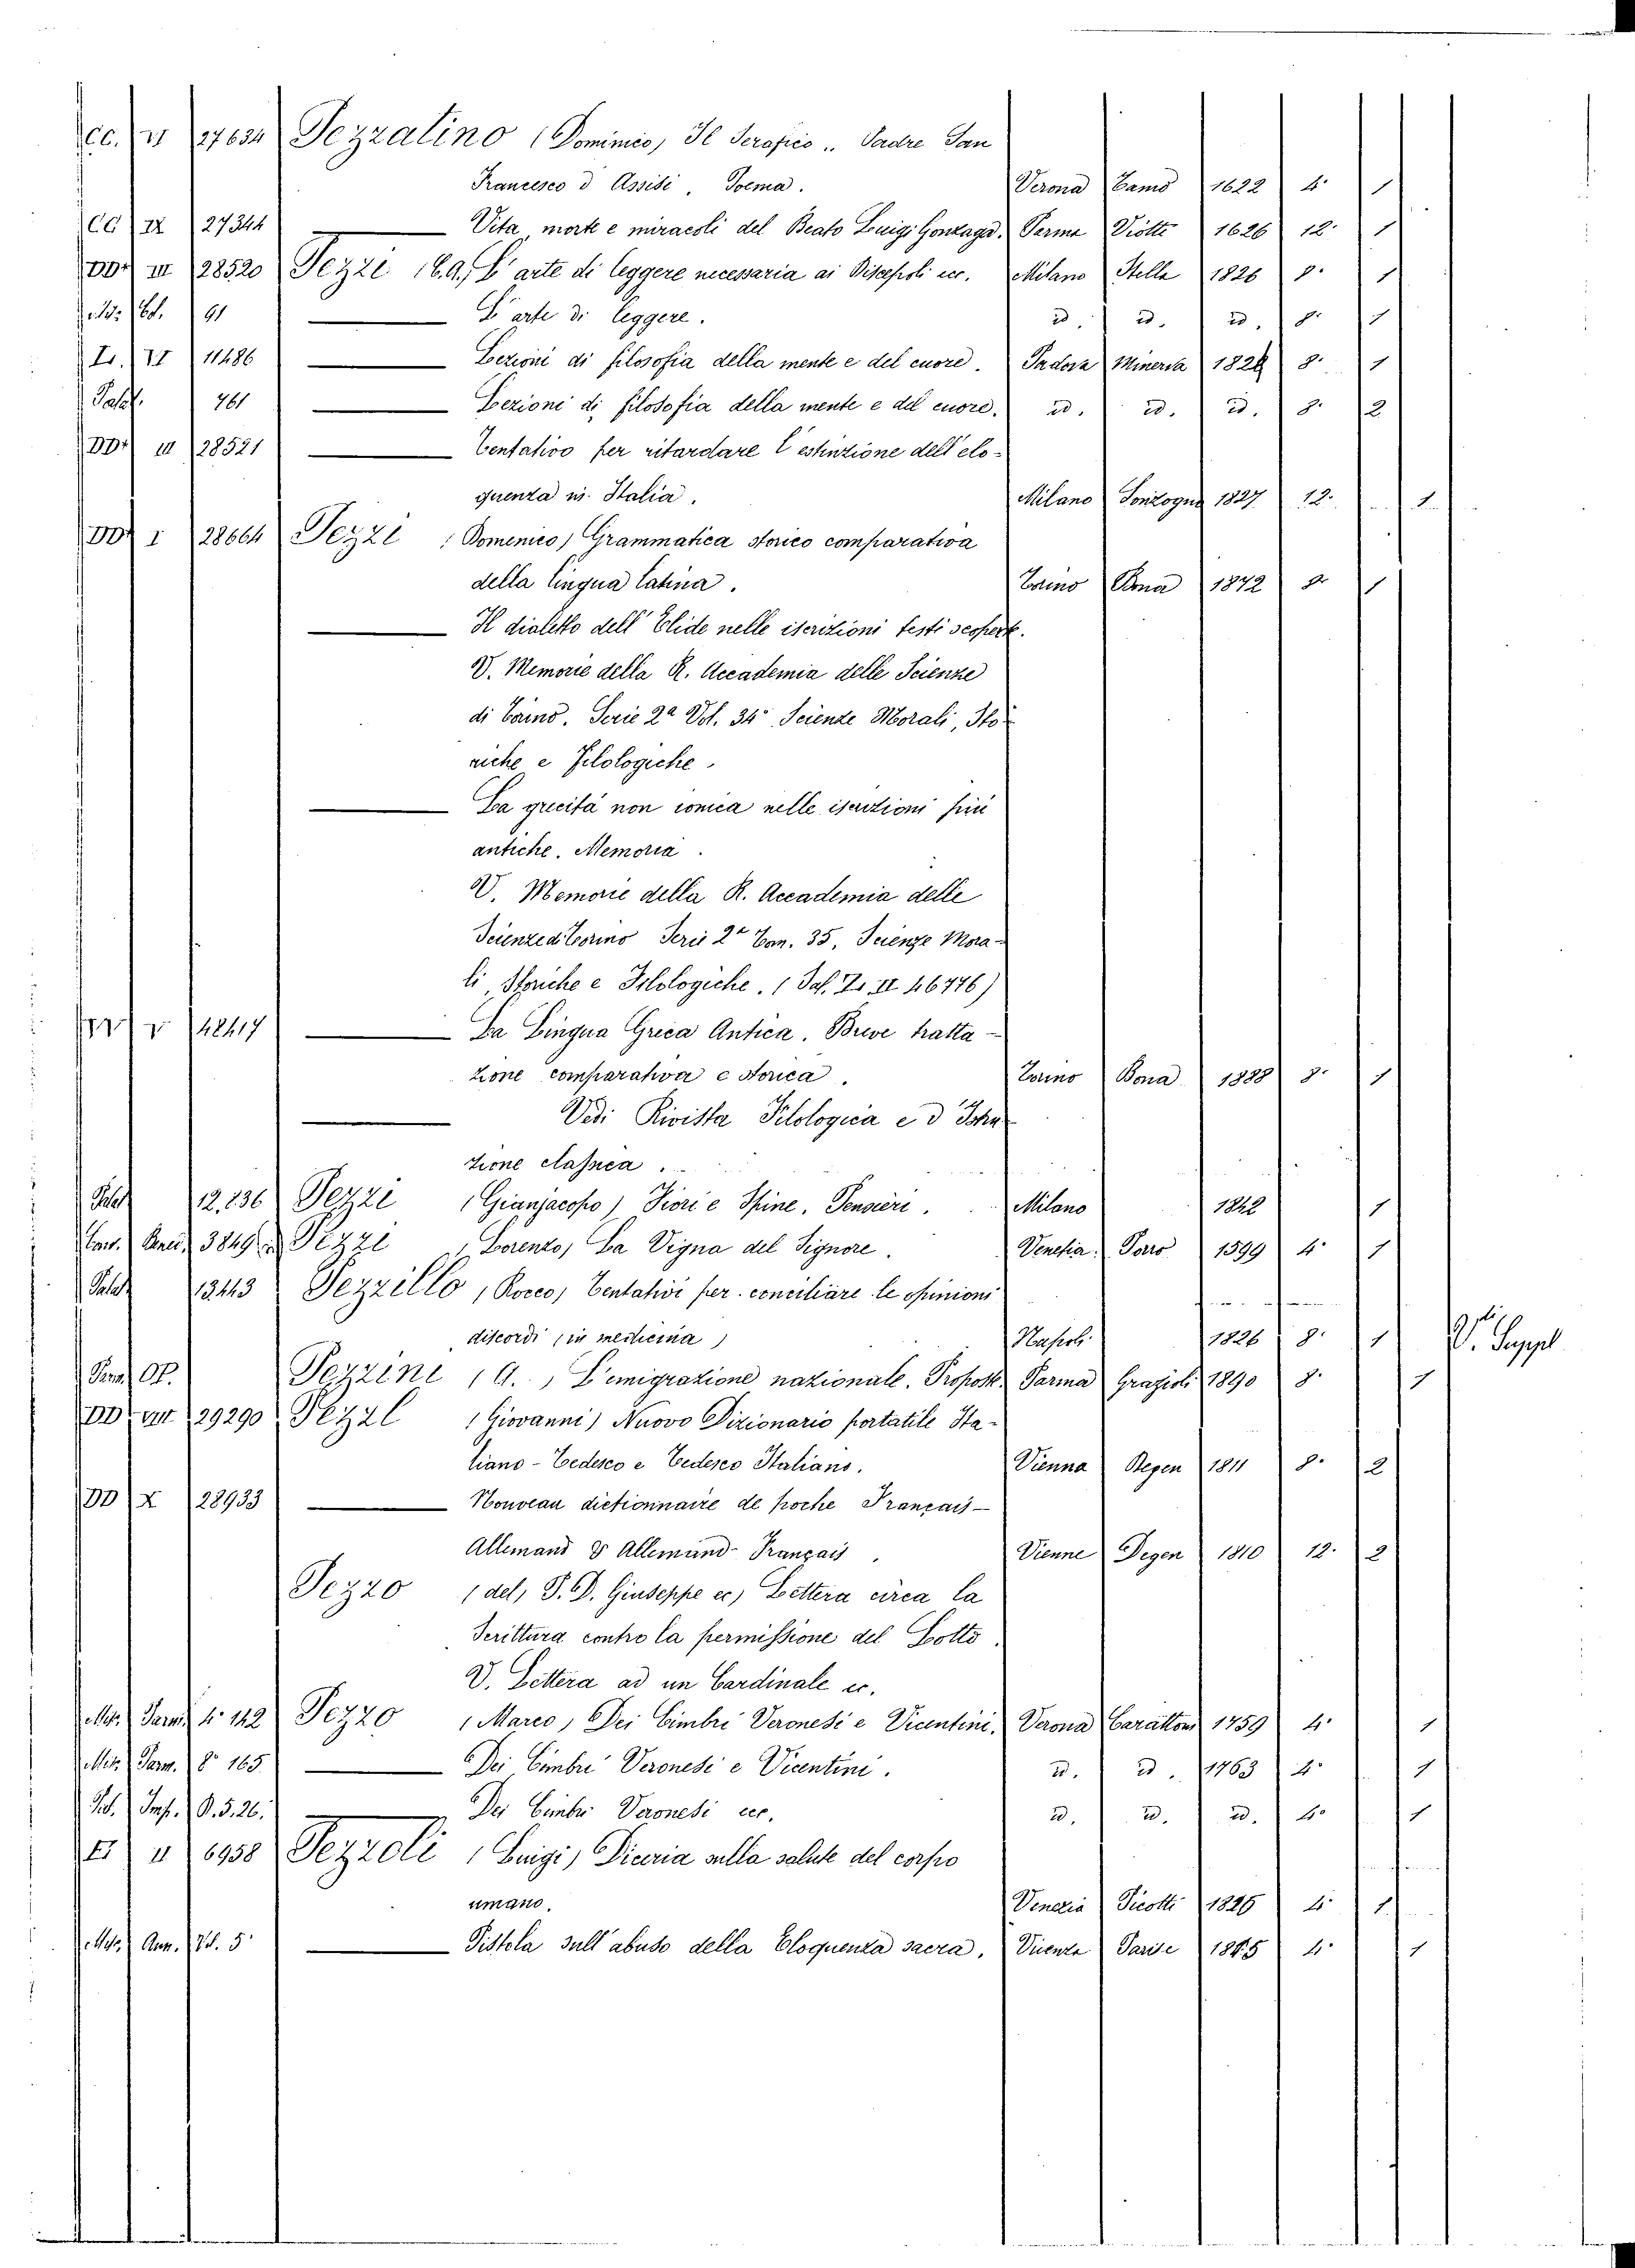 CC. VI 27634 Pezzalino (Dominico) Il Serafico .. Padre San
Francesco d'Assisi, Poema. Verona Tamo 1622 4° 1
CC IX 27344 Vita, morte e miracoli del Beato Luigi Gonzaga. Parma Viotti 1626 12° 1
DD+ III 28520 Pezzi (C.G.) L'arte di leggere necessaria ai Discepoli ecc. Milano Stella 1826 8° 1
91 L'arte di leggere. id. id. id. 8° 1
VI 11486 Lezioni di filosofia della mente e del cuore. Padova Minerva 8° 1
Palat. 761 Lezioni di filosofia della mente e del cuore. id. id. id. 8° 2
DD+ III 28521 Tentativo per ritardare l'estinzione dell'elo-
quenza in Italia. Milano Sonzogno 1827 12° 1
DD+ I 28664 Pezzi (Domenico) Grammatica storico comparativa
della lingua latina. Torino Bona 1872 8° 1
Il dialetto dell'Elide nelle iscrizioni testi scoperte.
V. Memorie della R. Accademia delle Scienze
di Torino. Serie 2a Vol. 34° Scienze Morali, Sto-
riche e Filologiche.
La grecità non ionica nelle iscrizioni più
antiche. Memoria.
V. Memorie della R. Accademia delle
Scienze di Torino Serie 2a Tom. 35, Scienze Mora-
li, Storiche e Filologiche. (Sal. Z. II 46776)
V 48417 La Lingua Greca Antica. Breve tratta-
zione comparativa e storica. Torino Bona 1888 8° 1
Vedi Rivista Filologica e d'Istru-
zione classica.
Palat 12,836 Pezzi (Gianjacopo) Fiori e Spine. Pensieri. Milano 1842 1
3849 Pezzi (Lorenzo) La Vigna del Signore. Venetia Porro 1599 4° 1
Palat 13443 Pezzillo (Rocco) Tentativi per conciliare le opinioni
discordi (in medicina) Napoli 1826 8° 1 V. Suppl
OP. Pezzini (G.) L'emigrazione nazionale. Propost. Parma Grazioli 1890 8° 1
DD VIII 29290 Pezzl (Giovanni) Nuovo Dizionario portatile Ita-
liano-Tedesco e Tedesco Italiano. Vienna Degen 1811 8° 2
DD X 28933 Nouveau dictionnaire de poche Français-
Allemand & Allemand-Français. Vienne Degen 1810 12° 2
Pezzo (del) P. D. Giuseppe ec) Lettera circa la
Scrittura contro la permissione del Lotto.
V. Lettera ad un Cardinale ec.
Mss. Parm. 4° 142 Pezzo (Marco) Dei Cimbri Veronesi e Vicentini. Verona Carattoni 1759 4° 1
Mss. Parm. 8° 165 Dei Cimbri Veronesi e Vicentini. id. id. 1763 4° 1
Imp. P. 5. 26. Dei Cimbri Veronesi ecc. id. id. id. 4° 1
II 6958 Pezzoli (Luigi) Diceria sulla salute del corpo
umano. Venezia Picotti 4° 1
5° Pistola sull'abuso della Eloquenza sacra. Vicenza Parise 4° 1